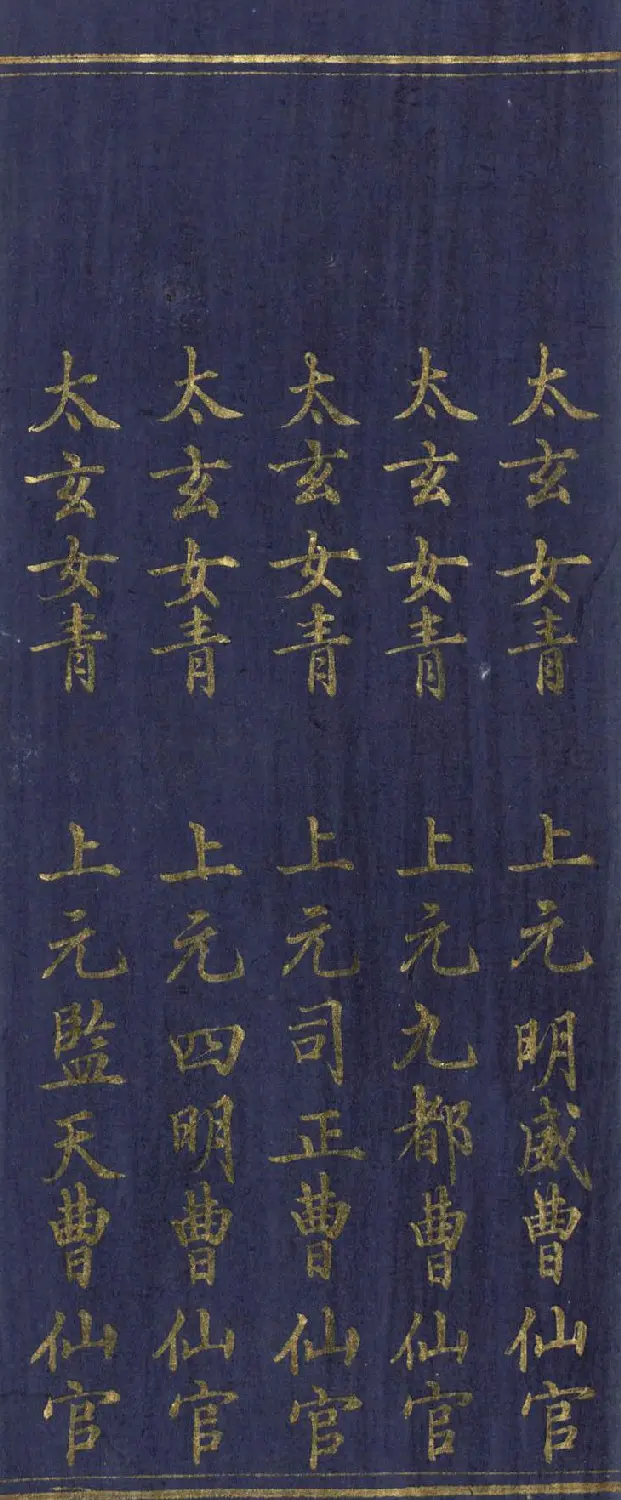 太玄女青 上元明威曹仙官
太玄女青 上元九都曹仙官
太玄女青 上元司正曹仙官
太玄女青 上元四明曹仙官
太玄女青 上元監天曹仙官